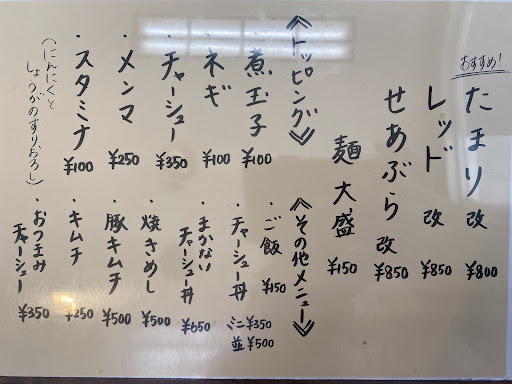 おすすめ!
たまり改 ¥800
レッド改 ¥850
せあぶら改 ¥850
麺大盛 ¥150
《トッピング》
・煮玉子 ¥100
・ネギ ¥100
・チャーシュー ¥350
・メンマ ¥250
・スタミナ ¥100
(にんにくと
しょうがのすりおろし)
《その他メニュー》
・ご飯 ¥150
・チャーシュー丼 ミニ¥350
並¥500
・まかない
チャーシュー丼 ¥650
・焼きめし ¥500
・豚キムチ ¥500
・キムチ ¥250
・おつまみ
チャーシュー ¥350